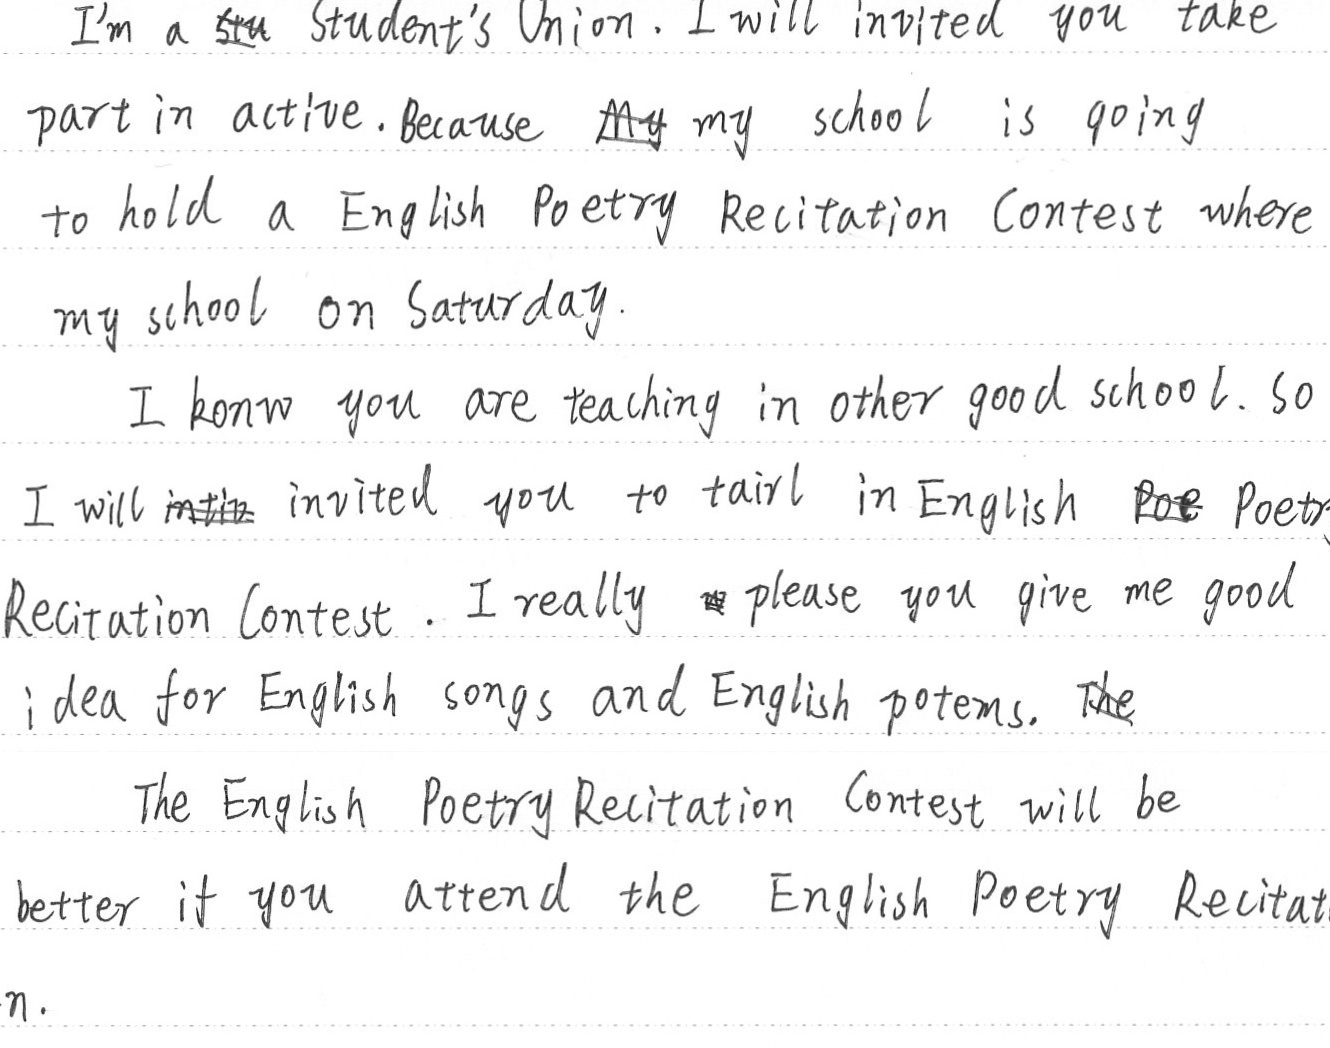 I'm a Student's Union. I will invited you take
part in active. Because my school is going
to hold a English Poetry Recitation Contest where
my school on Saturday.
I konw you are teaching in other good school. So
I will invited you to tairl in English Poetr
Recitation Contest. I really please you give me good
idea for English songs and English potems. The
The English Poetry Recitation Contest will be
better if you attend the English Poetry Recitat
n.